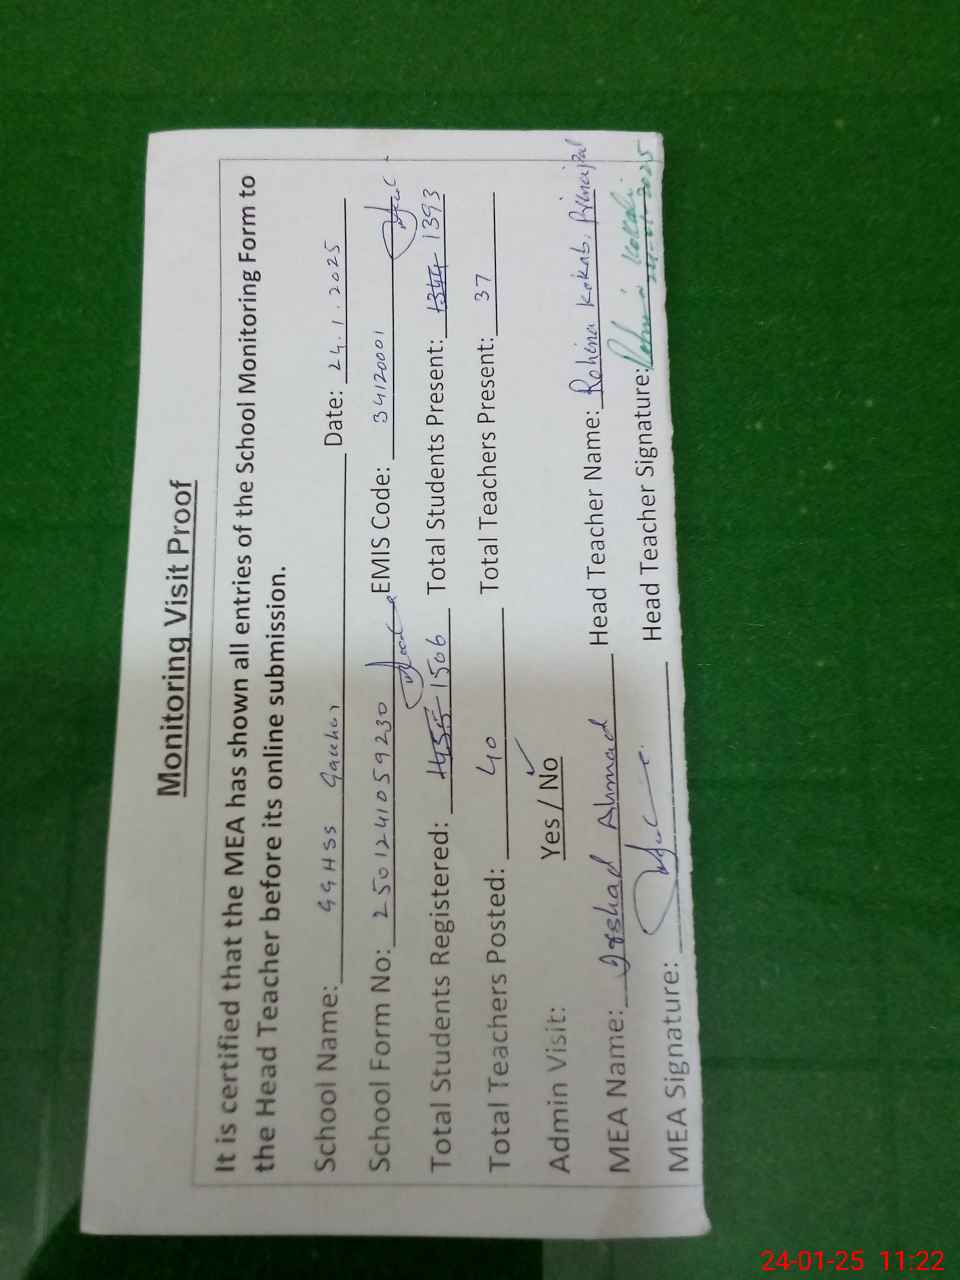 Monitoring Visit Proof
It is certified that the MEA has shown all entries of the School Monitoring Form to
the Head Teacher before its online submission.
School Name: GGHSS Date: 24.1.2025
School Form No: 2501241059230 EMIS Code: 34120001
Total Students Registered: 1455 1506 Total Students Present: 1344 1393
Total Teachers Posted: 40 Total Teachers Present: 37
Admin Visit: Yes / No ✓
MEA Name: Irshad Ahmad Head Teacher Name: Rohina Kokab, Principal
MEA Signature: Head Teacher Signature: Rohina Kokab
24-01-2025
24-01-25 11:22